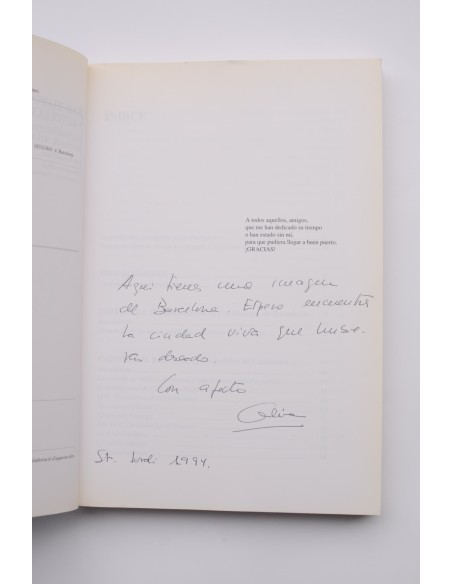 A todos aquellos, amigos,
que me han dedicado su tiempo
o han estado sin mí,
para que pudiera llegar a buen puerto.
¡GRACIAS!
Aquí tienes una imagen
de Barcelona. Espero encuentres
la ciudad viva que hubie-
ras deseado.
Con afecto
St. Jordi 1994.